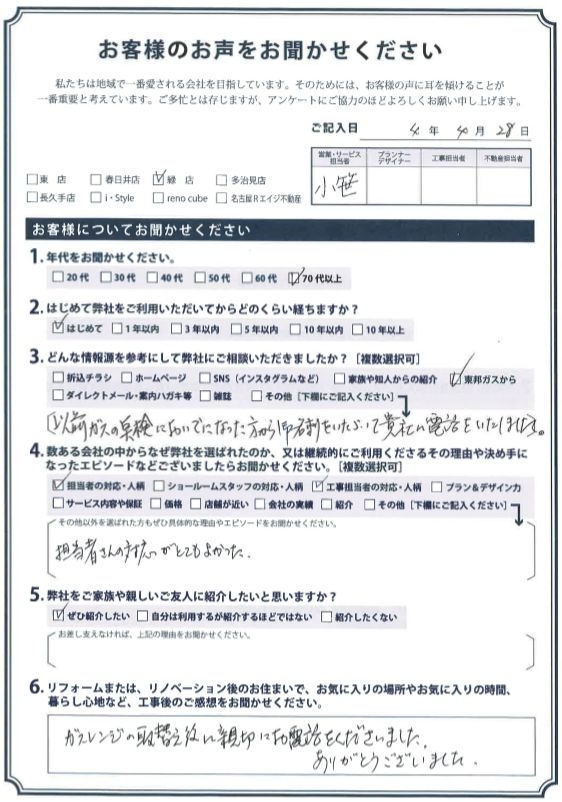 お客様のお声をお聞かせください
私たちは地域で一番愛される会社を目指しています。そのためには、お客様の声に耳を傾けることが
一番重要と考えています。ご多忙とは存じますが、アンケートにご協力のほどよろしくお願い申し上げます。
ご記入日 4 年 4 月 28 日
営業・サービス担当者 プランナーデザイナー 工事担当者 不動産担当者
小笹
□東 店 □春日井店 ☑緑 店 □多治見店
□長久手店 □i・Style □reno cube □名古屋Rエイジ不動産
お客様についてお聞かせください
1. 年代をお聞かせください。
□20代 □30代 □40代 □50代 □60代 ☑70代以上
2. はじめて弊社をご利用いただいてからどのくらい経ちますか？
☑はじめて □1年以内 □3年以内 □5年以内 □10年以内 □10年以上
3. どんな情報源を参考にして弊社にご相談いただきましたか？［複数選択可］
□折込チラシ □ホームページ □SNS（インスタグラムなど） □家族や知人からの紹介 ☑東邦ガスから
□ダイレクトメール・案内ハガキ等 □雑誌 □その他［下欄にご記入ください］
以前ガスの点検においでになった方から名刺をいただいて貴社に電話をいたしました。
4. 数ある会社の中からなぜ弊社を選ばれたのか、又は継続的にご利用くださるその理由や決め手に
なったエピソードなどございましたらお聞かせください。［複数選択可］
☑担当者の対応・人柄 □ショールームスタッフの対応・人柄 ☑工事担当者の対応・人柄 □プラン＆デザイン力
□サービス内容や保証 □価格 □店舗が近い □会社の実績 □紹介 □その他［下欄にご記入ください］
その他以外を選ばれた方もぜひ具体的な理由やエピソードをお聞かせください。
担当者さんの対応がとてもよかった.
5. 弊社をご家族や親しいご友人に紹介したいと思いますか？
☑ぜひ紹介したい □自分は利用するが紹介するほどではない □紹介したくない
お差し支えなければ、上記の理由をお聞かせください。
6. リフォームまたは、リノベーション後のお住まいで、お気に入りの場所やお気に入りの時間、
暮らし心地など、工事後のご感想をお聞かせください。
ガスレンジの取替え後に親切にお電話をくださいました.
ありがとうございました.